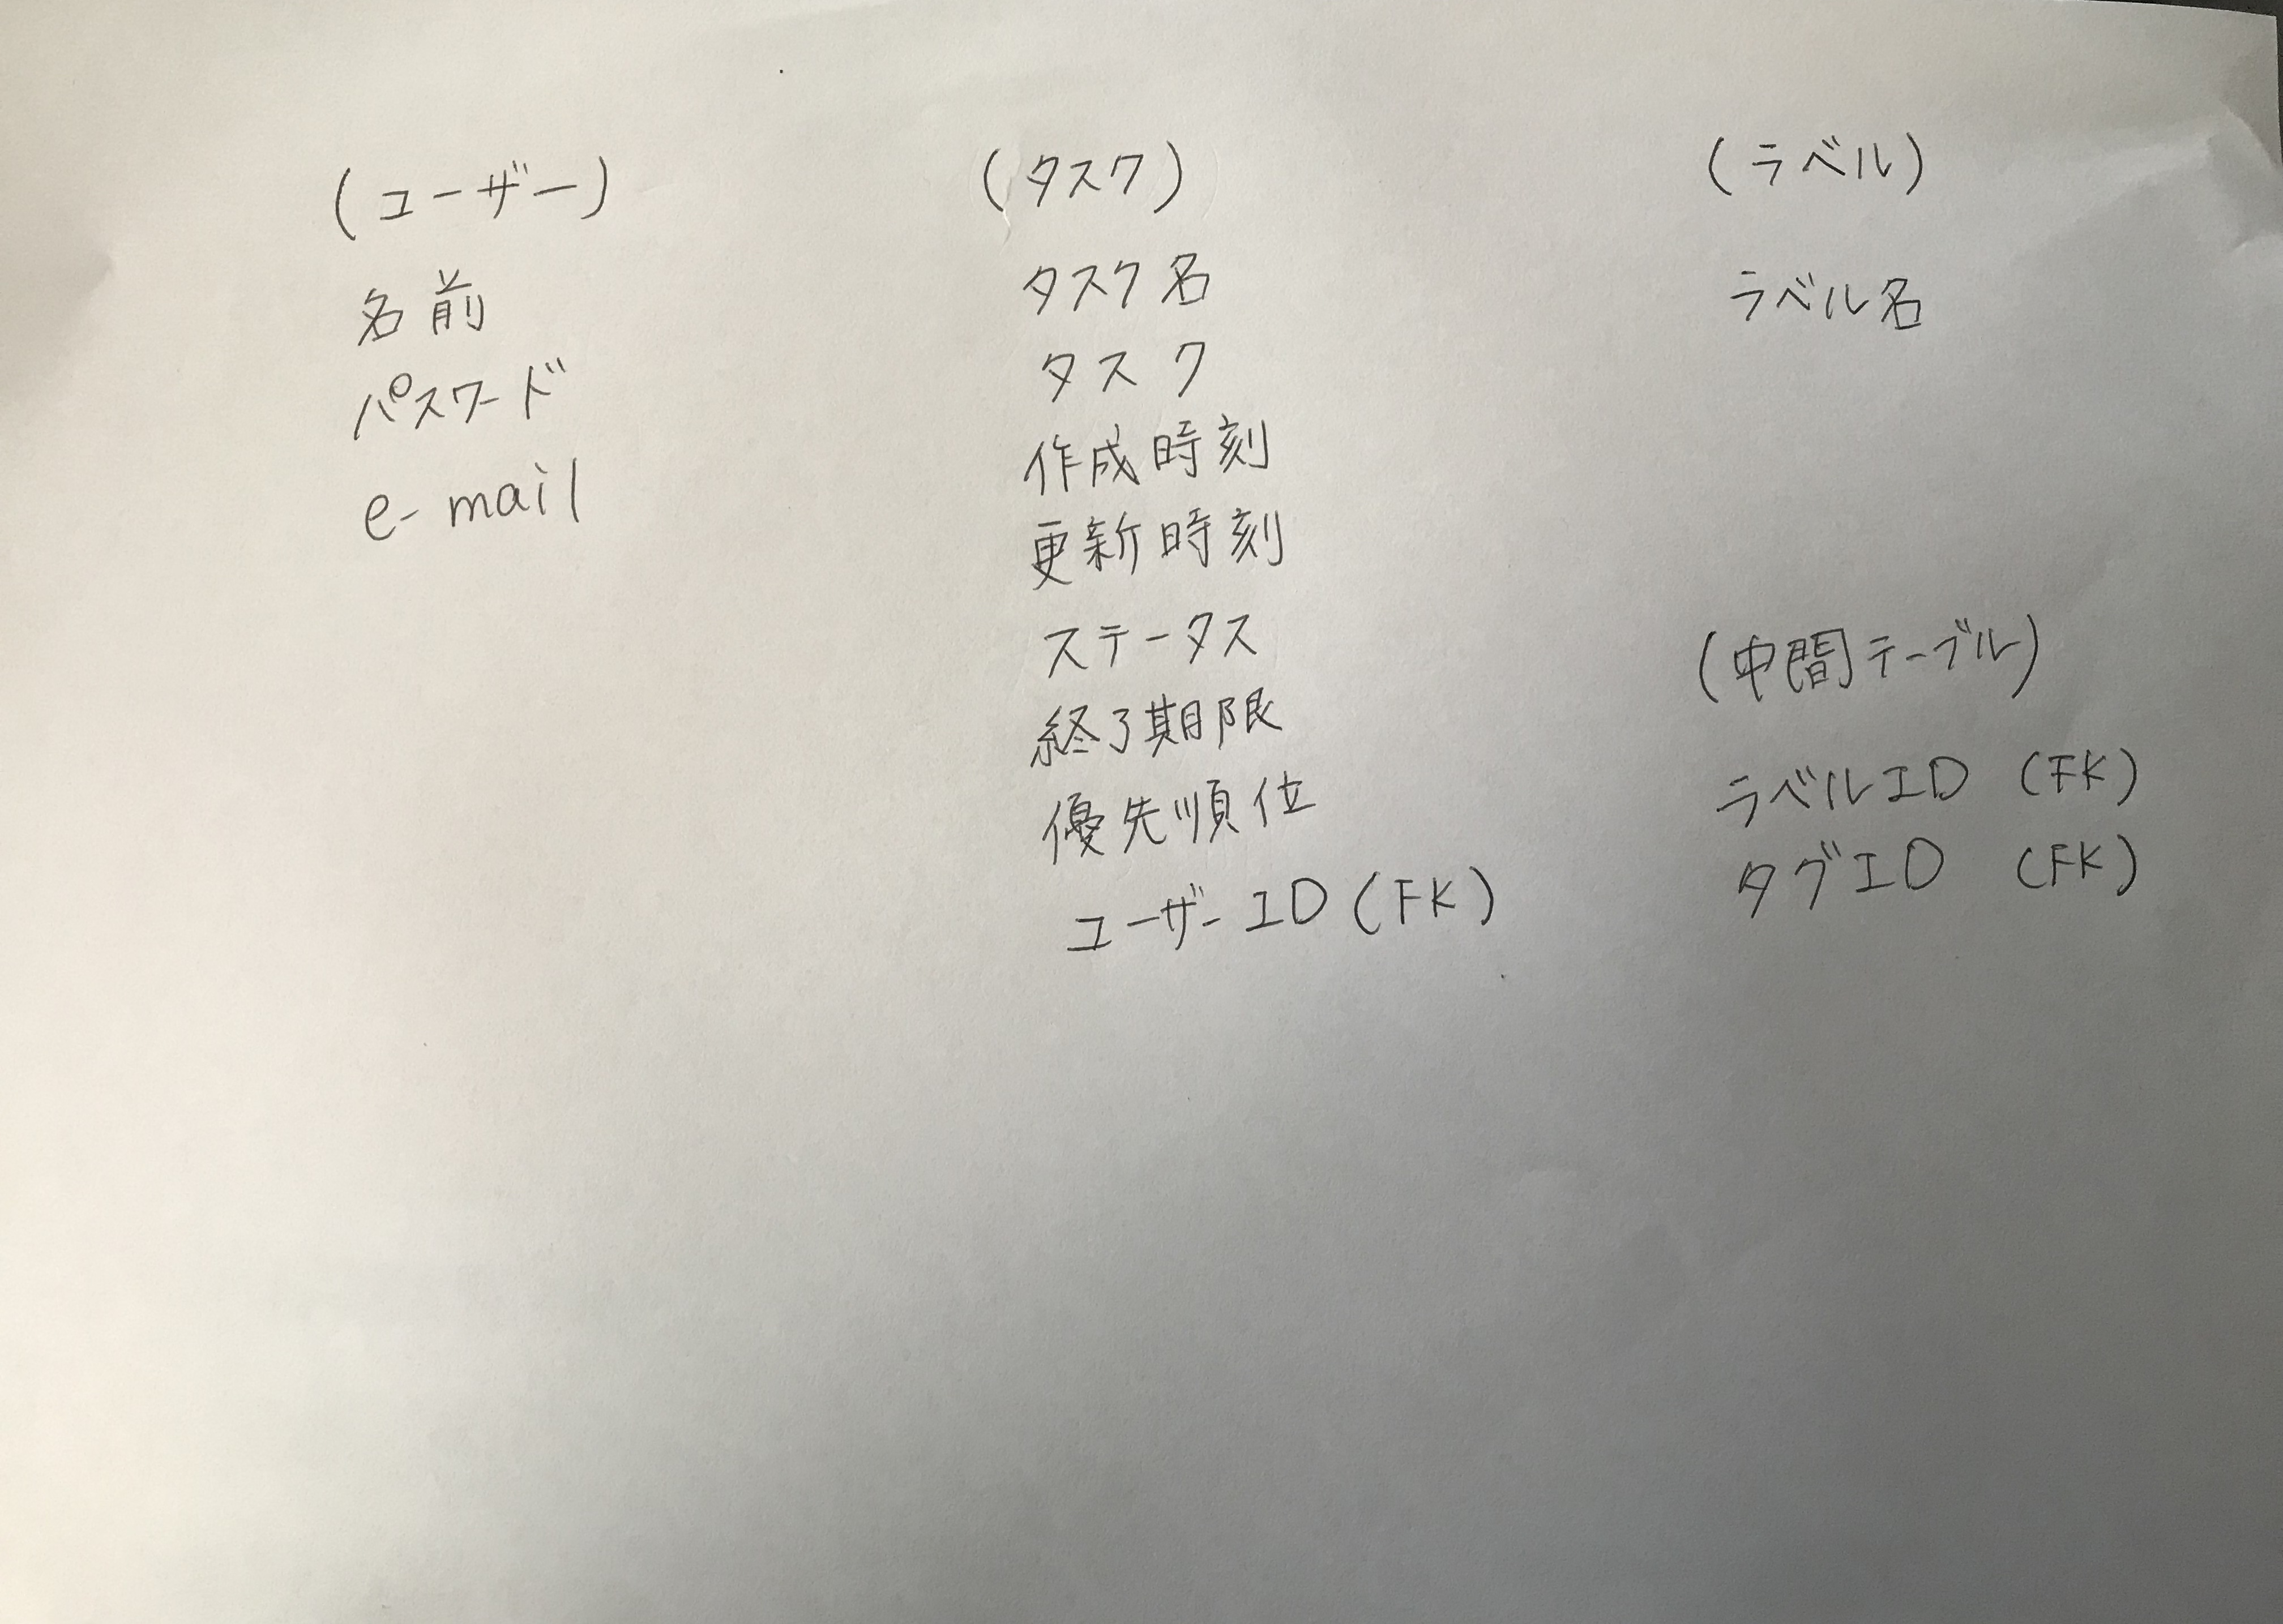 (ユーザー)
名前
パスワード
e-mail
(タスク)
タスク名
タスク
作成時刻
更新時刻
ステータス
終了期限
優先順位
ユーザーID (FK)
(ラベル)
ラベル名
(中間テーブル)
ラベルID (FK)
タグID (FK)